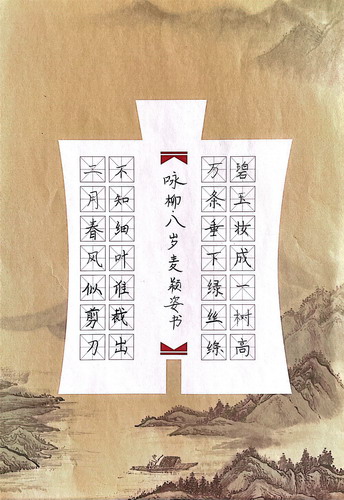 碧玉妆成一树高
万条垂下绿丝绦
咏柳·八岁麦颖姿书
不知细叶谁裁出
二月春风似剪刀